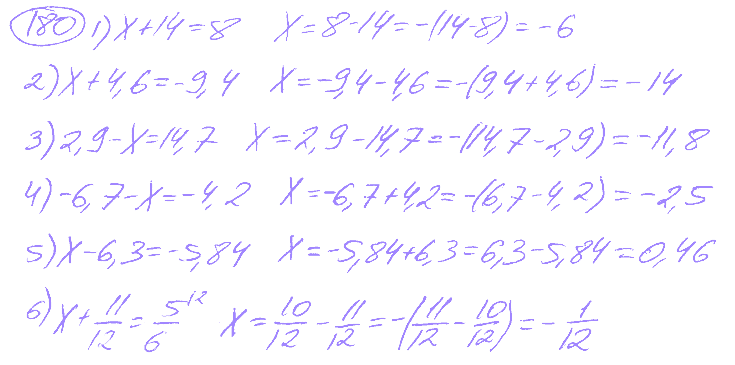 180 1) x+14=8 x=8-14=-(14-8)=-6
2) x+4,6=-9,4 x=-9,4-4,6=-(9,4+4,6)=-14
3) 2,9-x=14,7 x=2,9-14,7=-(14,7-2,9)=-11,8
4) -6,7-x=-4,2 x=-6,7+4,2=-(6,7-4,2)=-2,5
5) x-6,3=-5,84 x=-5,84+6,3=6,3-5,84=0,46
6) x+11/12=5/6^12 x=10/12-11/12=-(11/12-10/12)=-1/12